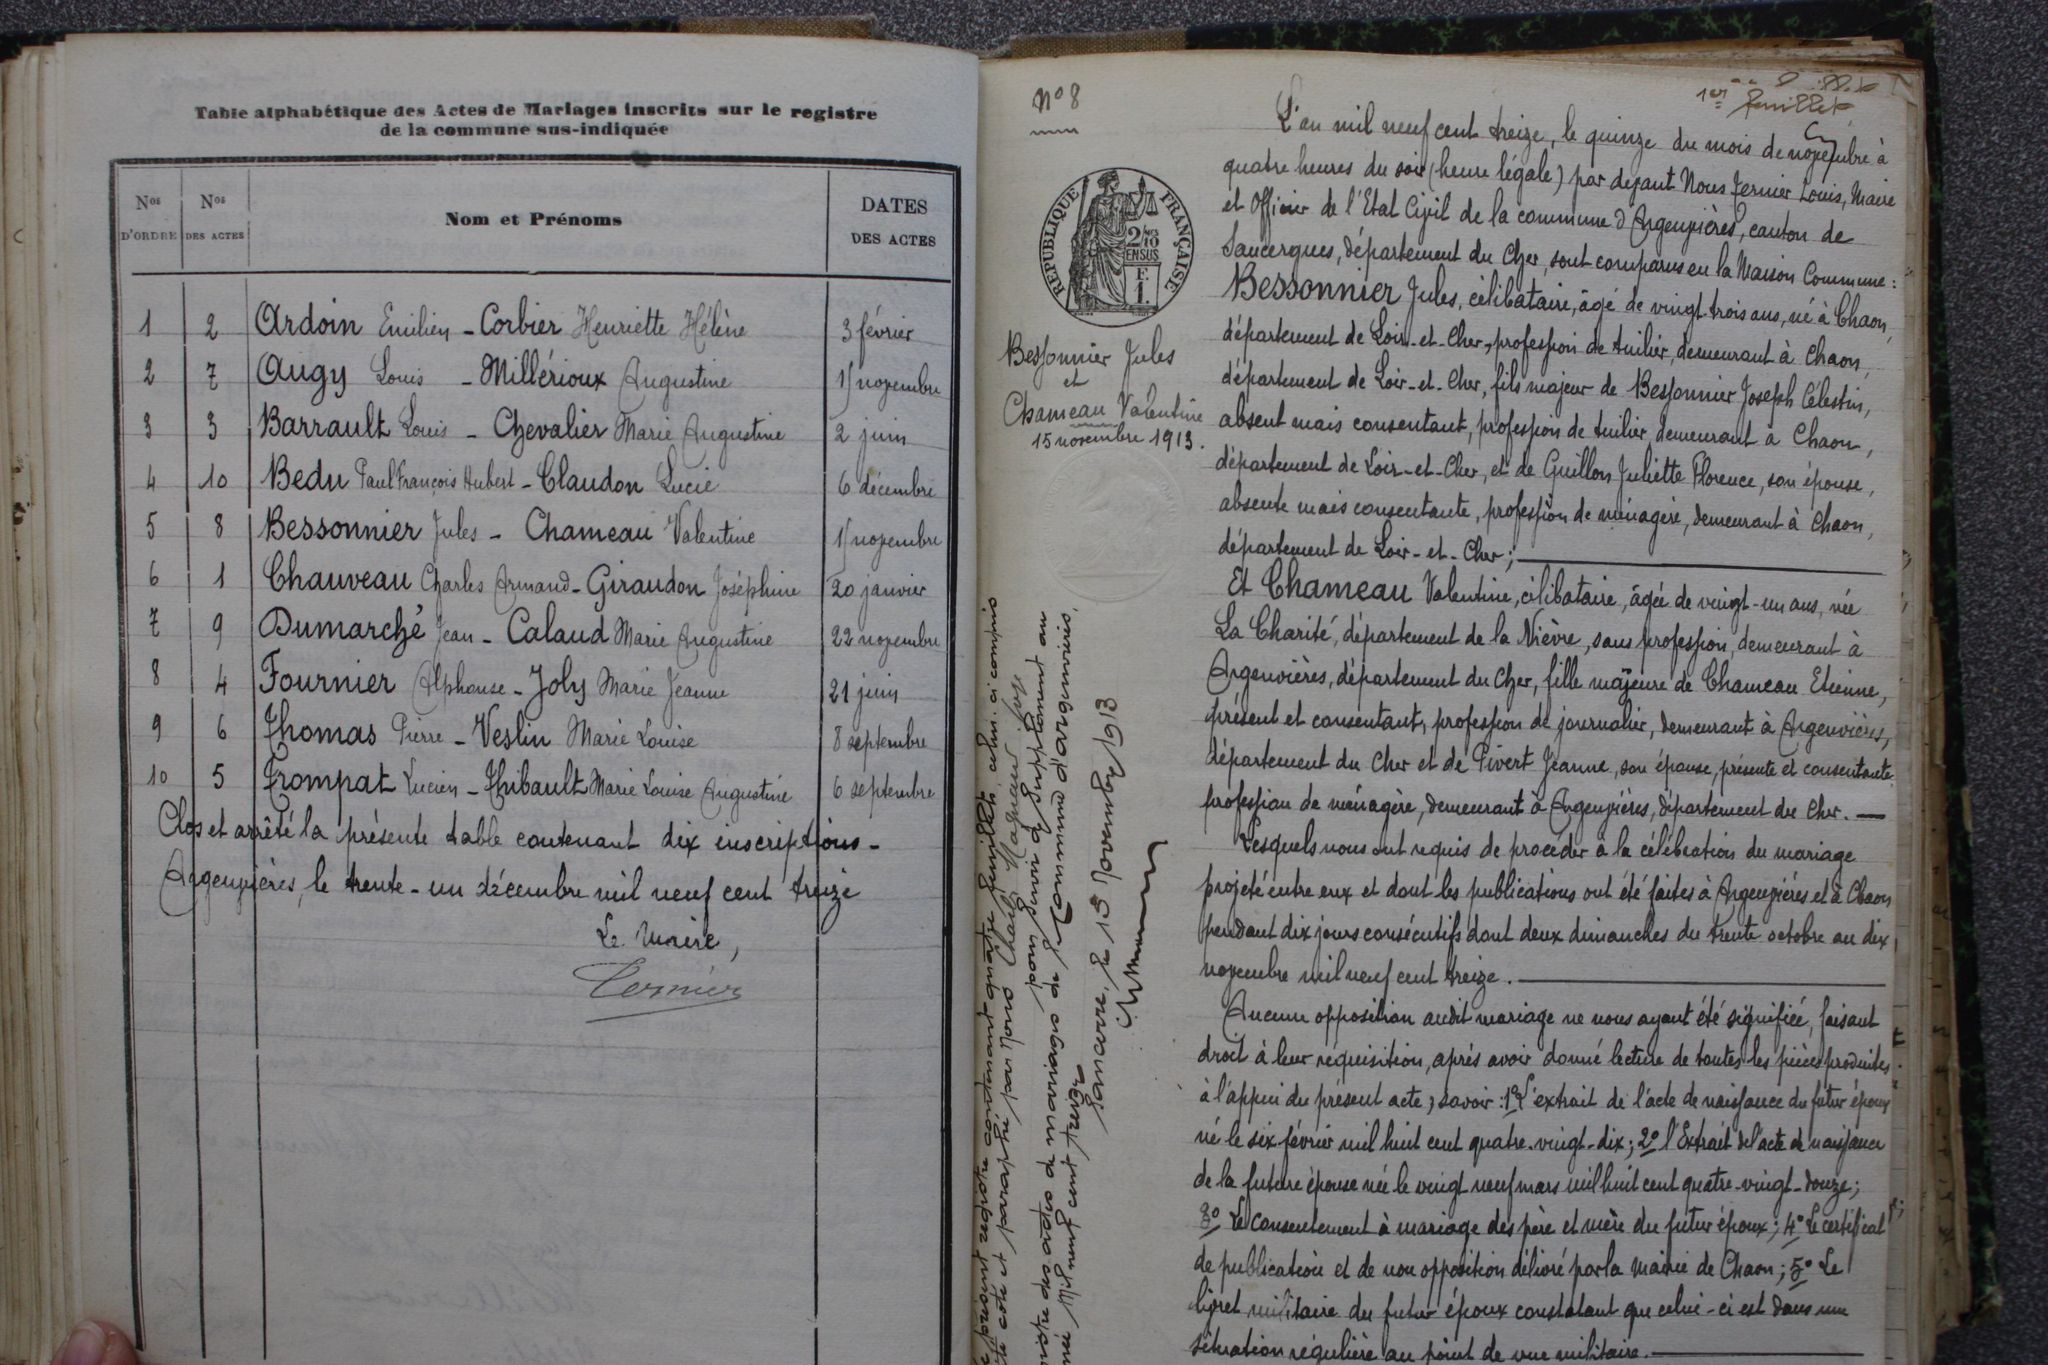 Table alphabétique des Actes de Mariages inscrits sur le registre
de la commune sus-indiquée
Nos D'ORDRE Nos DES ACTES Nom et Prénoms DATES DES ACTES
1 2 Ardoin Emilien - Corbier Henriette Hélène 3 février
2 7 Augy Louis - Millérioux Augustine 15 novembre
3 3 Barrault Louis - Chevalier Marie Augustine 2 juin
4 10 Bedu Paul François Hubert - Claudon Lucie 6 décembre
5 8 Bessonnier Jules - Chameau Valentine 15 novembre
6 1 Chauveau Charles Armand - Giraudon Joséphine 20 janvier
7 9 Dumarché Jean - Calaud Marie Augustine 22 novembre
8 4 Fournier Alphonse - Joly Marie Jeanne 21 juin
9 6 Thomas Pierre - Veslin Marie Louise 8 septembre
10 5 Trompat Lucien - Thibault Marie Louise Augustine 6 septembre
Clos et arrêté la présente table contenant dix inscriptions -
Argenvières, le trente-un décembre mil neuf cent treize
Le Maire,
Ternier
No 8
RÉPUBLIQUE FRANÇAISE
2/10 EN SUS
Bessonnier Jules
et
Chameau Valentine
15 novembre 1913.
Le présent registre contenant quatre feuillets, celui-ci compris
coté et paraphé par Nous
pour servir de supplément au
registre des actes de mariages de la Commune d'Argenvières,
année Mil neuf cent treize
Sancerre, le 15 Novembre 1913
1er feuillet
L'an mil neuf cent treize, le quinze du mois de novembre à
quatre heures du soir (heure légale) par devant Nous Ternier Louis, Maire
et Officier de l'Etat Civil de la commune d'Argenvières, canton de
Sancergues, département du Cher, sont comparus en la Maison Commune :
Bessonnier Jules, célibataire, âgé de vingt-trois ans, né à Chaon,
département de Loir-et-Cher, profession de tuilier, demeurant à Chaon,
département de Loir-et-Cher, fils majeur de Bessonnier Joseph Célestin,
absent mais consentant, profession de tuilier, demeurant à Chaon,
département de Loir-et-Cher, et de Guillon Juliette Florence, son épouse,
absente mais consentante, profession de ménagère, demeurant à Chaon,
département de Loir-et-Cher ;
Et Chameau Valentine, célibataire, âgée de vingt-un ans, née
La Charité, département de la Nièvre, sans profession, demeurant à
Argenvières, département du Cher, fille majeure de Chameau Etienne,
présent et consentant, profession de journalier, demeurant à Argenvières,
département du Cher et de Pivert Jeanne, son épouse, présente et consentante
profession de ménagère, demeurant à Argenvières, département du Cher.
Lesquels nous ont requis de procéder à la célébration du mariage
projeté entre eux et dont les publications ont été faites à Argenvières et à Chaon
pendant dix jours consécutifs dont deux dimanches du trente octobre au dix
novembre mil neuf cent treize.
Aucune opposition audit mariage ne nous ayant été signifiée, faisant
droit à leur réquisition, après avoir donné lecture de toutes les pièces produites
à l'appui du présent acte, savoir : 1o l'extrait de l'acte de naissance du futur époux
né le six février mil huit cent quatre-vingt-dix ; 2o l'Extrait de l'acte de naissance
de la future épouse née le vingt neuf mars mil huit cent quatre-vingt-douze ;
3o Le consentement à mariage des père et mère du futur époux ; 4o Le certificat
de publication et de non opposition délivré par la Mairie de Chaon ; 5o Le
livret militaire du futur époux constatant que celui-ci est dans une
situation régulière au point de vue militaire.